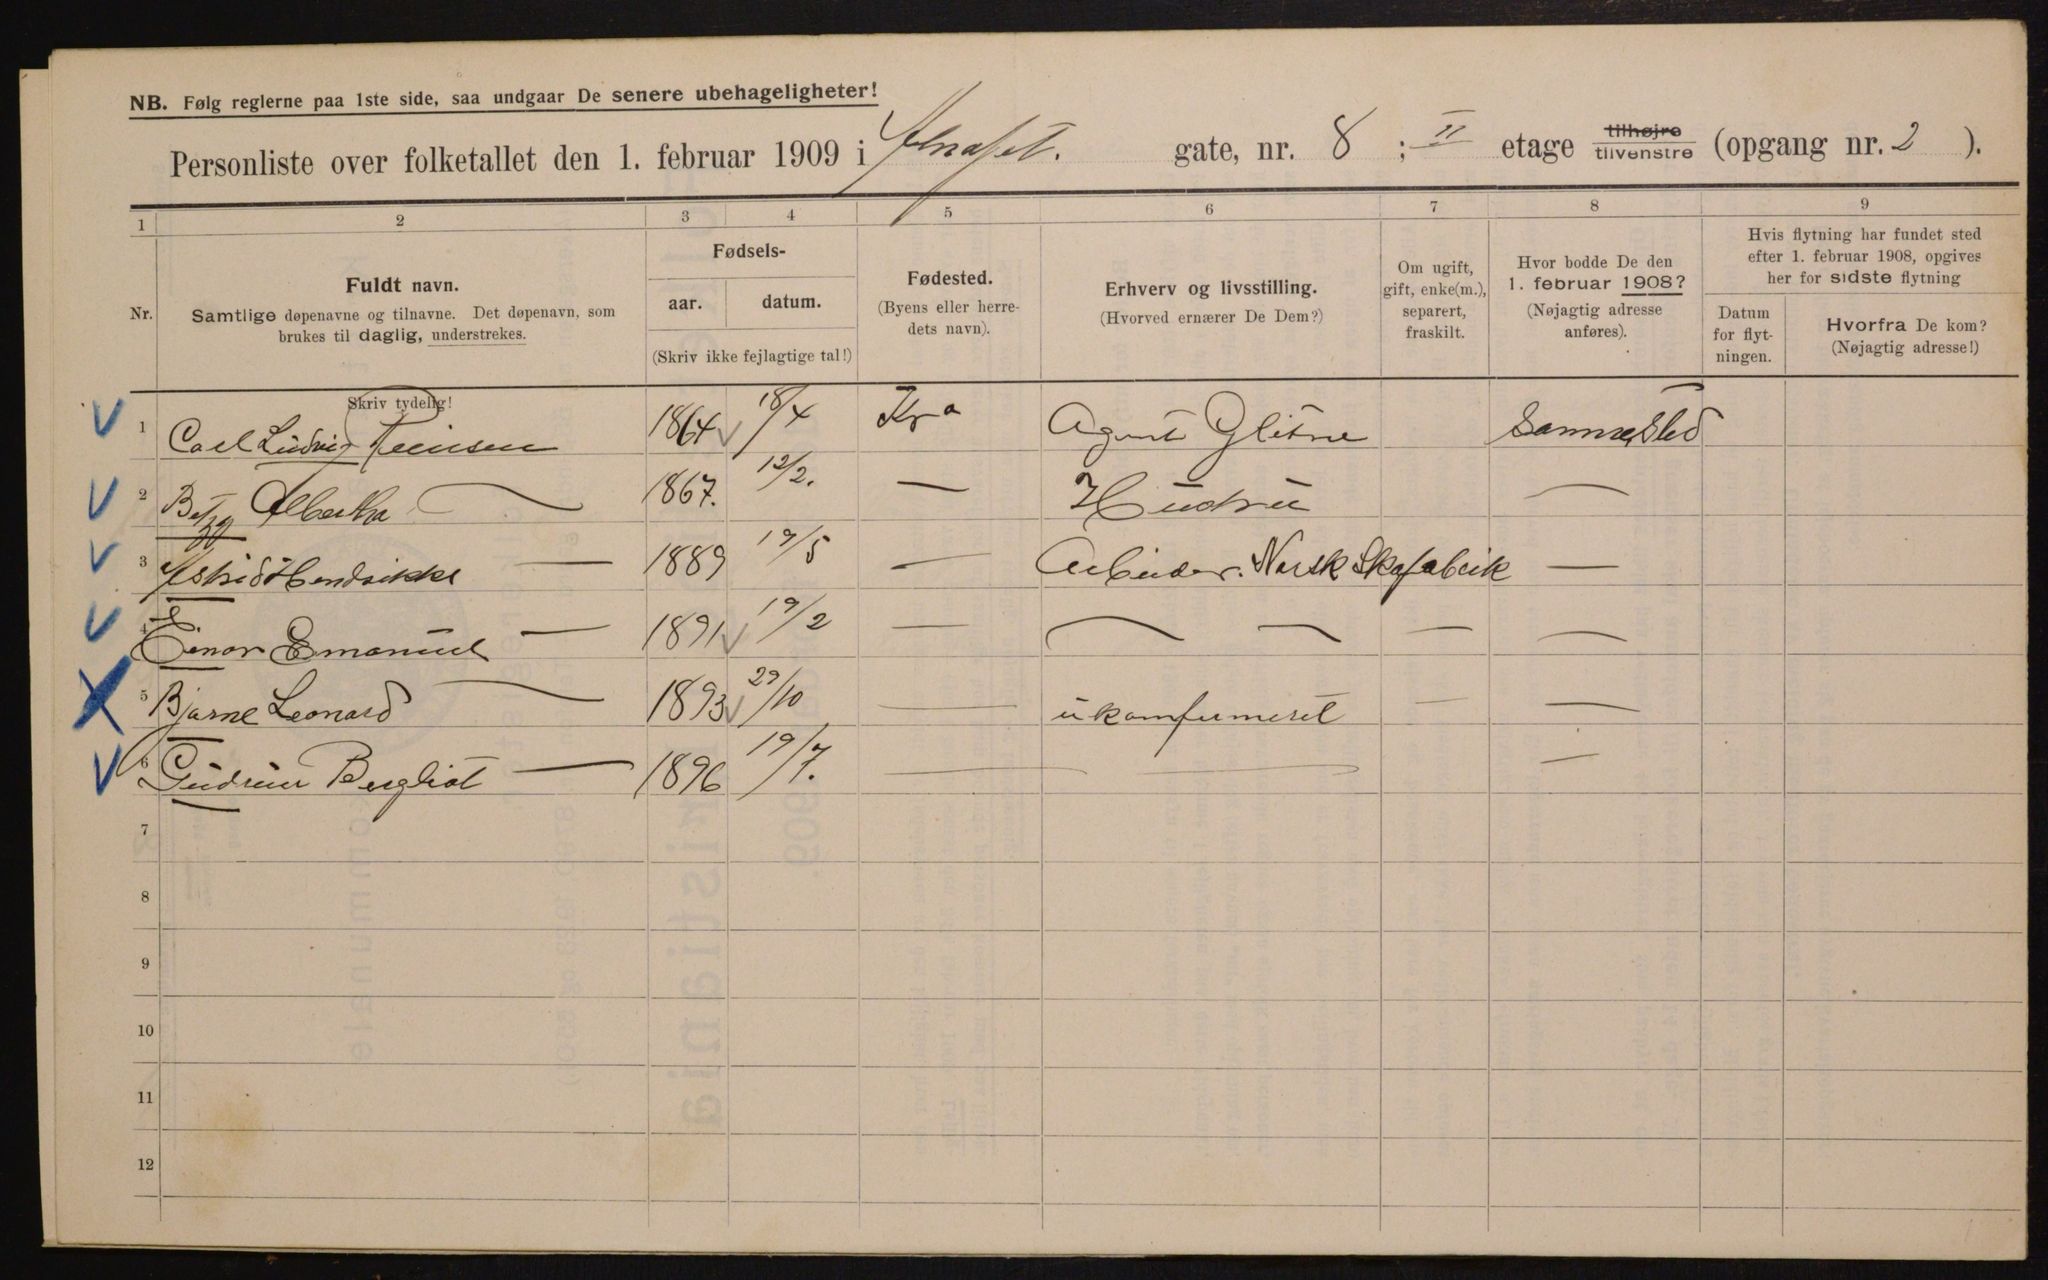 NB. Følg reglerne paa 1ste side, saa undgaar De senere ubehageligheter!
Personliste over folketallet den 1. februar 1909 i gate, nr. 8 ; II etage tilhøjre tilvenstre (opgang nr. 2 ).
1 2 3 4 5 6 7 8 9
Nr.
Fuldt navn.
Samtlige døpenavne og tilnavne. Det døpenavn, som
brukes til daglig, understrekes.
Fødsels-
aar. datum.
(Skriv ikke fejlagtige tal!)
Fødested.
(Byens eller herre-
dets navn).
Erhverv og livsstilling.
(Hvorved ernærer De Dem?)
Om ugift,
gift, enke(m.),
separert,
fraskilt.
Hvor bodde De den
1. februar 1908?
(Nøjagtig adresse
anføres).
Hvis flytning har fundet sted
efter 1. februar 1908, opgives
her for sidste flytning
Datum
for flyt-
ningen.
Hvorfra De kom?
(Nøjagtig adresse!)
Skriv tydelig!
1 Carl Ludvig 1864 18/4 Kra Agent Glitne Sammested
2 Betzy Albertha — 1867. 12/2. — Hustru —
3 Astrid Hendrikke — 1889 19/5 — Arbeider. Norsk Skofabrik —
4 Einar Emanuel — 1891 19/2 — — — — —
5 Bjarne Leonard — 1893 29/10 — ukonfirmeret — —
6 Gudrun Bergliot — 1896 19/7. — — —
7
8
9
10
11
12